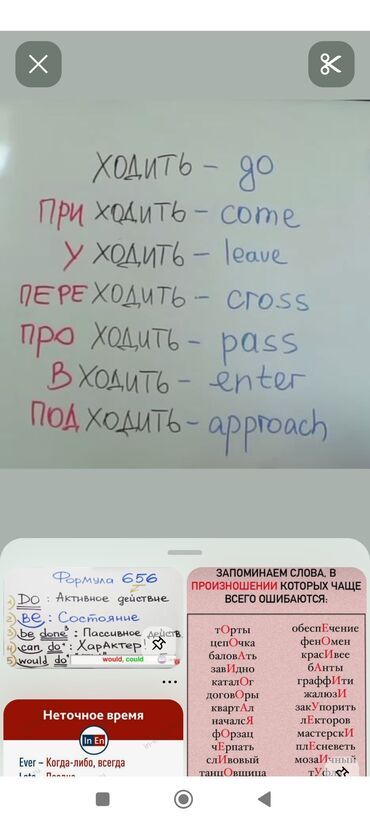 ХОДИТЬ – go
ПРИХОДИТЬ – come
УХОДИТЬ – leave
ПЕРЕХОДИТЬ – cross
ПРОХОДИТЬ – pass
ВХОДИТЬ – enter
ПОДХОДИТЬ – approach
Формула 656
1) DO : Активное действие
2) BE : Состояние
3) be done : Пассивное действ.
4) can do : Характер!
5) would do
would, could
Неточное время
In En
Ever – Когда-либо, всегда
ЗАПОМИНАЕМ СЛОВА, В
ПРОИЗНОШЕНИИ КОТОРЫХ ЧАЩЕ
ВСЕГО ОШИБАЮТСЯ:
тОрты
цепОчка
баловАть
завИдно
каталОг
договОры
квартАл
началсЯ
фОрзац
чЕрпать
слИвовый
танцОвщица
обеспЕчение
фенОмен
красИвее
бАнты
граффИти
жалюзИ
закУпорить
лЕкторов
мастерскИ
плЕсневеть
мозаИчный